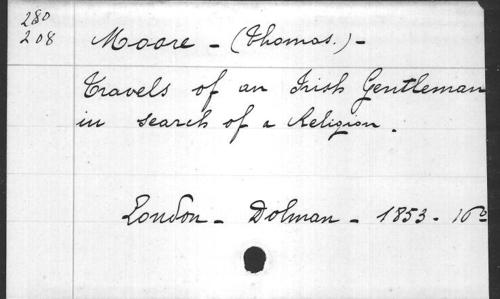 280
208
Moore - (Thomas.) -
Travels of an Irish Gentleman
in search of a Religion.
London - Dolman - 1853 - 16º